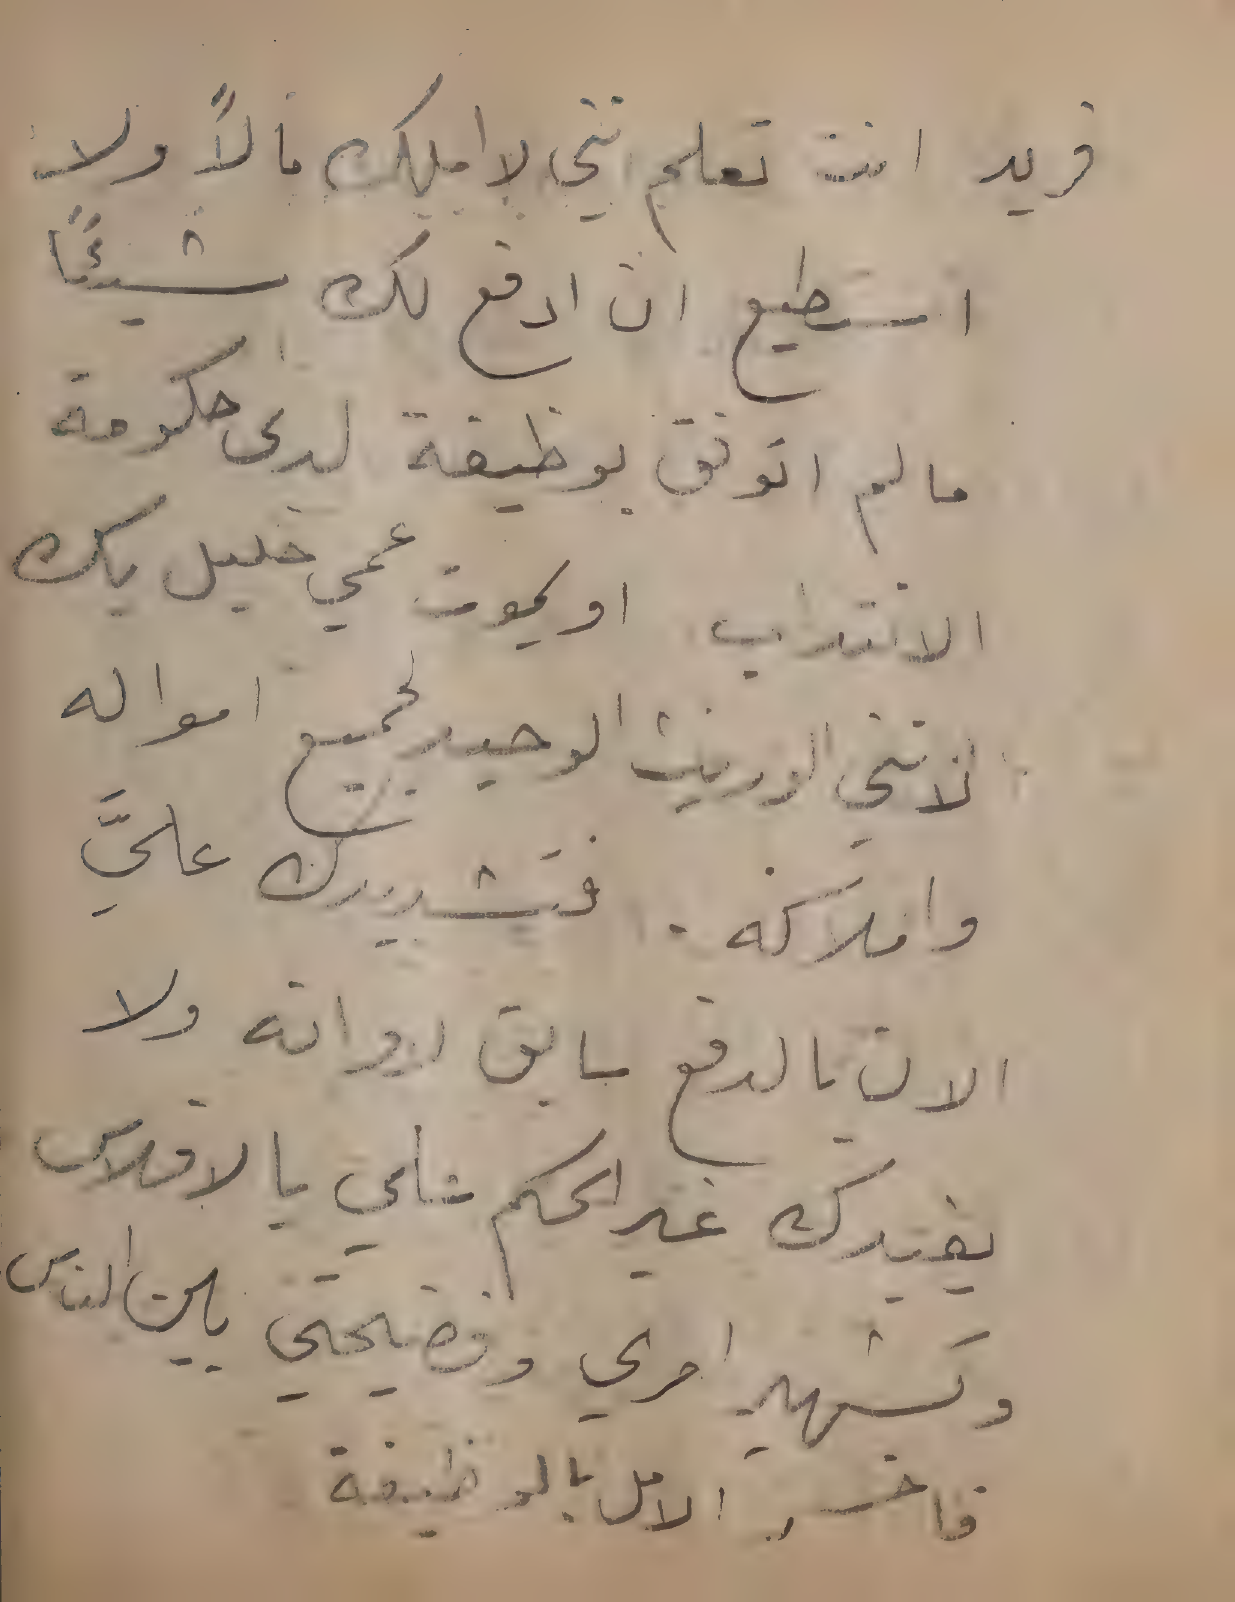 فريد انت تعلم انني لا املك مالاً ولا
استطيع ان ادفع لك شيئًا
مالم اتوفق بوظيفة لدى حكومة
الانتداب او يموت عمي خليل بك
لانني الوريث الوحيد لجميع امواله
واملاكه . فتشديدك عليَّ
الان بالدفع سابق اوانه ولا
يفيدك غير الحكم علي بالافلاس
وتشهير امري وفضيحتي بين الناس
فاخسر الامل بالوظيفة